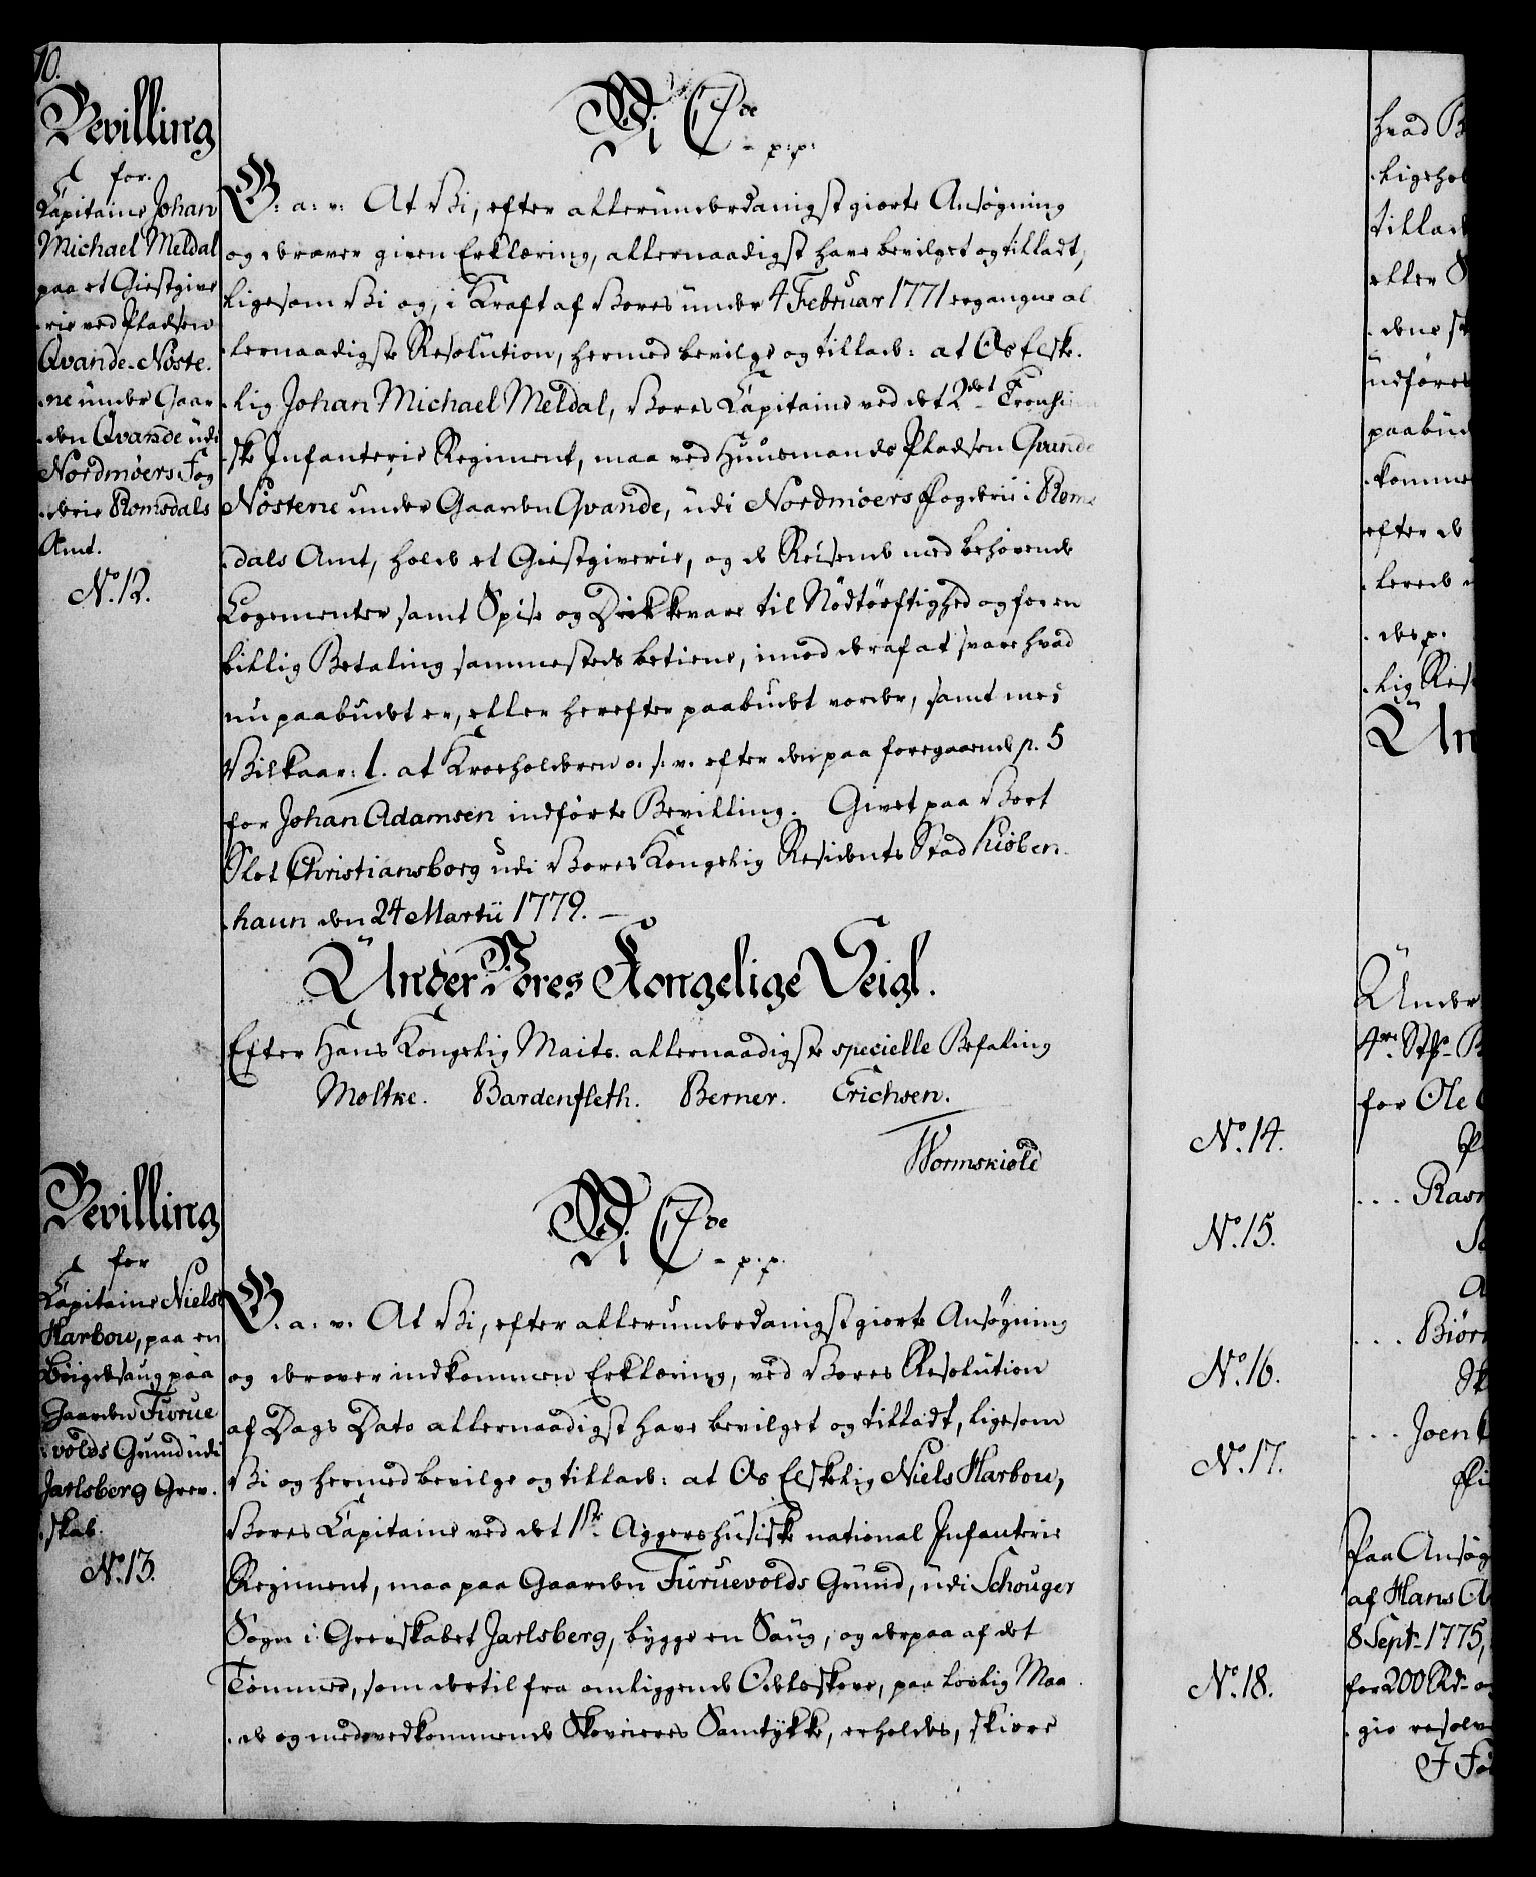 10.
Bevilling
for
Capitaine Johan
Michael Meldal
paa et Giestgive
-rie ved Pladsen
Qvande-Nöste-
-ne under Gaar
-den Qvande udi
Nordmöers Fog
-derie Romsdals
Amt.
No. 12.
Vi C 7de
- p:p:
G: a: v: At Vi, efter allerunderdanigst giorte Ansøgning
og derover given Erklæring, allernaadigst have bevilget og tilladt,
ligesom Vi og, i Kraft af Vores under 4 Februar 1771 ergangne al
-lernaadigste Resolution, hermed bevilge og tillade: at Os Elske-
-lig Johan Michael Meldal, Vores Capitaine ved det 2det Tronhiem
-ske Infanterie Regiment, maa ved Huusmands Pladsen Qvande
Nöstene under Gaarden Qvande, udi Nordmöers Fogderie i Roms
-dals Amt, holde et Giestgiverie, og de Reisende med behøvende
Logementer samt Spise og Drikkevare til Nödtörftighed og for en
billig Betaling sammesteds betiene, imod deraf at svare hvad
nu paabudet er, eller herefter paabudet vorder, samt mod
Vilkaar: 1. at Kroeholderen o. s. v. efter den paa foregaaende p. 5
for Johan Adamsen indførte Bevilling. Givet paa Vort
Slot Christiansborg udi Vores Kongelig Residents Stad Kiöben-
-haun den 24 Martii 1779. —
Under Vores Kongelige Seigl.
Efter Hans Kongelig Maits. allernaadigste specielle Befaling
Moltke. Bardenfleth. Berner. Erichsen.
Wormskiold
Bevilling
for
Capitaine Niels
Harbou, paa en
Böigdesaug paa
Gaarden Furue
-volds Grund udi
Jarlsberg Grev-
-skab.
No. 13.
Vi C 7de
- p.p.
G. a. v. At Vi, efter allerunderdanigst giorte Ansøgning
og derover indkommen Erklæring, ved Vores Resolution
af Dags Dato allernaadigst have bevilget og tilladt, ligesom
Vi og hermed bevilge og tillade: at Os Elskelig Niels Harbou,
Vores Capitaine ved det 1ste Aggershusiske national Infanterie
Regiment, maa paa Gaarden Furuevolds Grund, udi Schouger
Sogn i Grevskabet Jarlsberg, bygge en Saug, og derpaa af det
Tömmer, som dertil fra omliggende Odelsskove, paa lovlig Maa
-de og med vedkommende Skoveieres Samtykke, erholdes, skiære
No. 14.
No. 15.
No. 16.
No. 17.
No. 18.
hvad B
tillad
eller S
udføres
paabud
komme
efter d
lig Res
Un
Under
for Ole
Rasm
Biör
Joen
Paa Ansög
af Hans A
8 Sept. 1775,
for 200 Rd. o